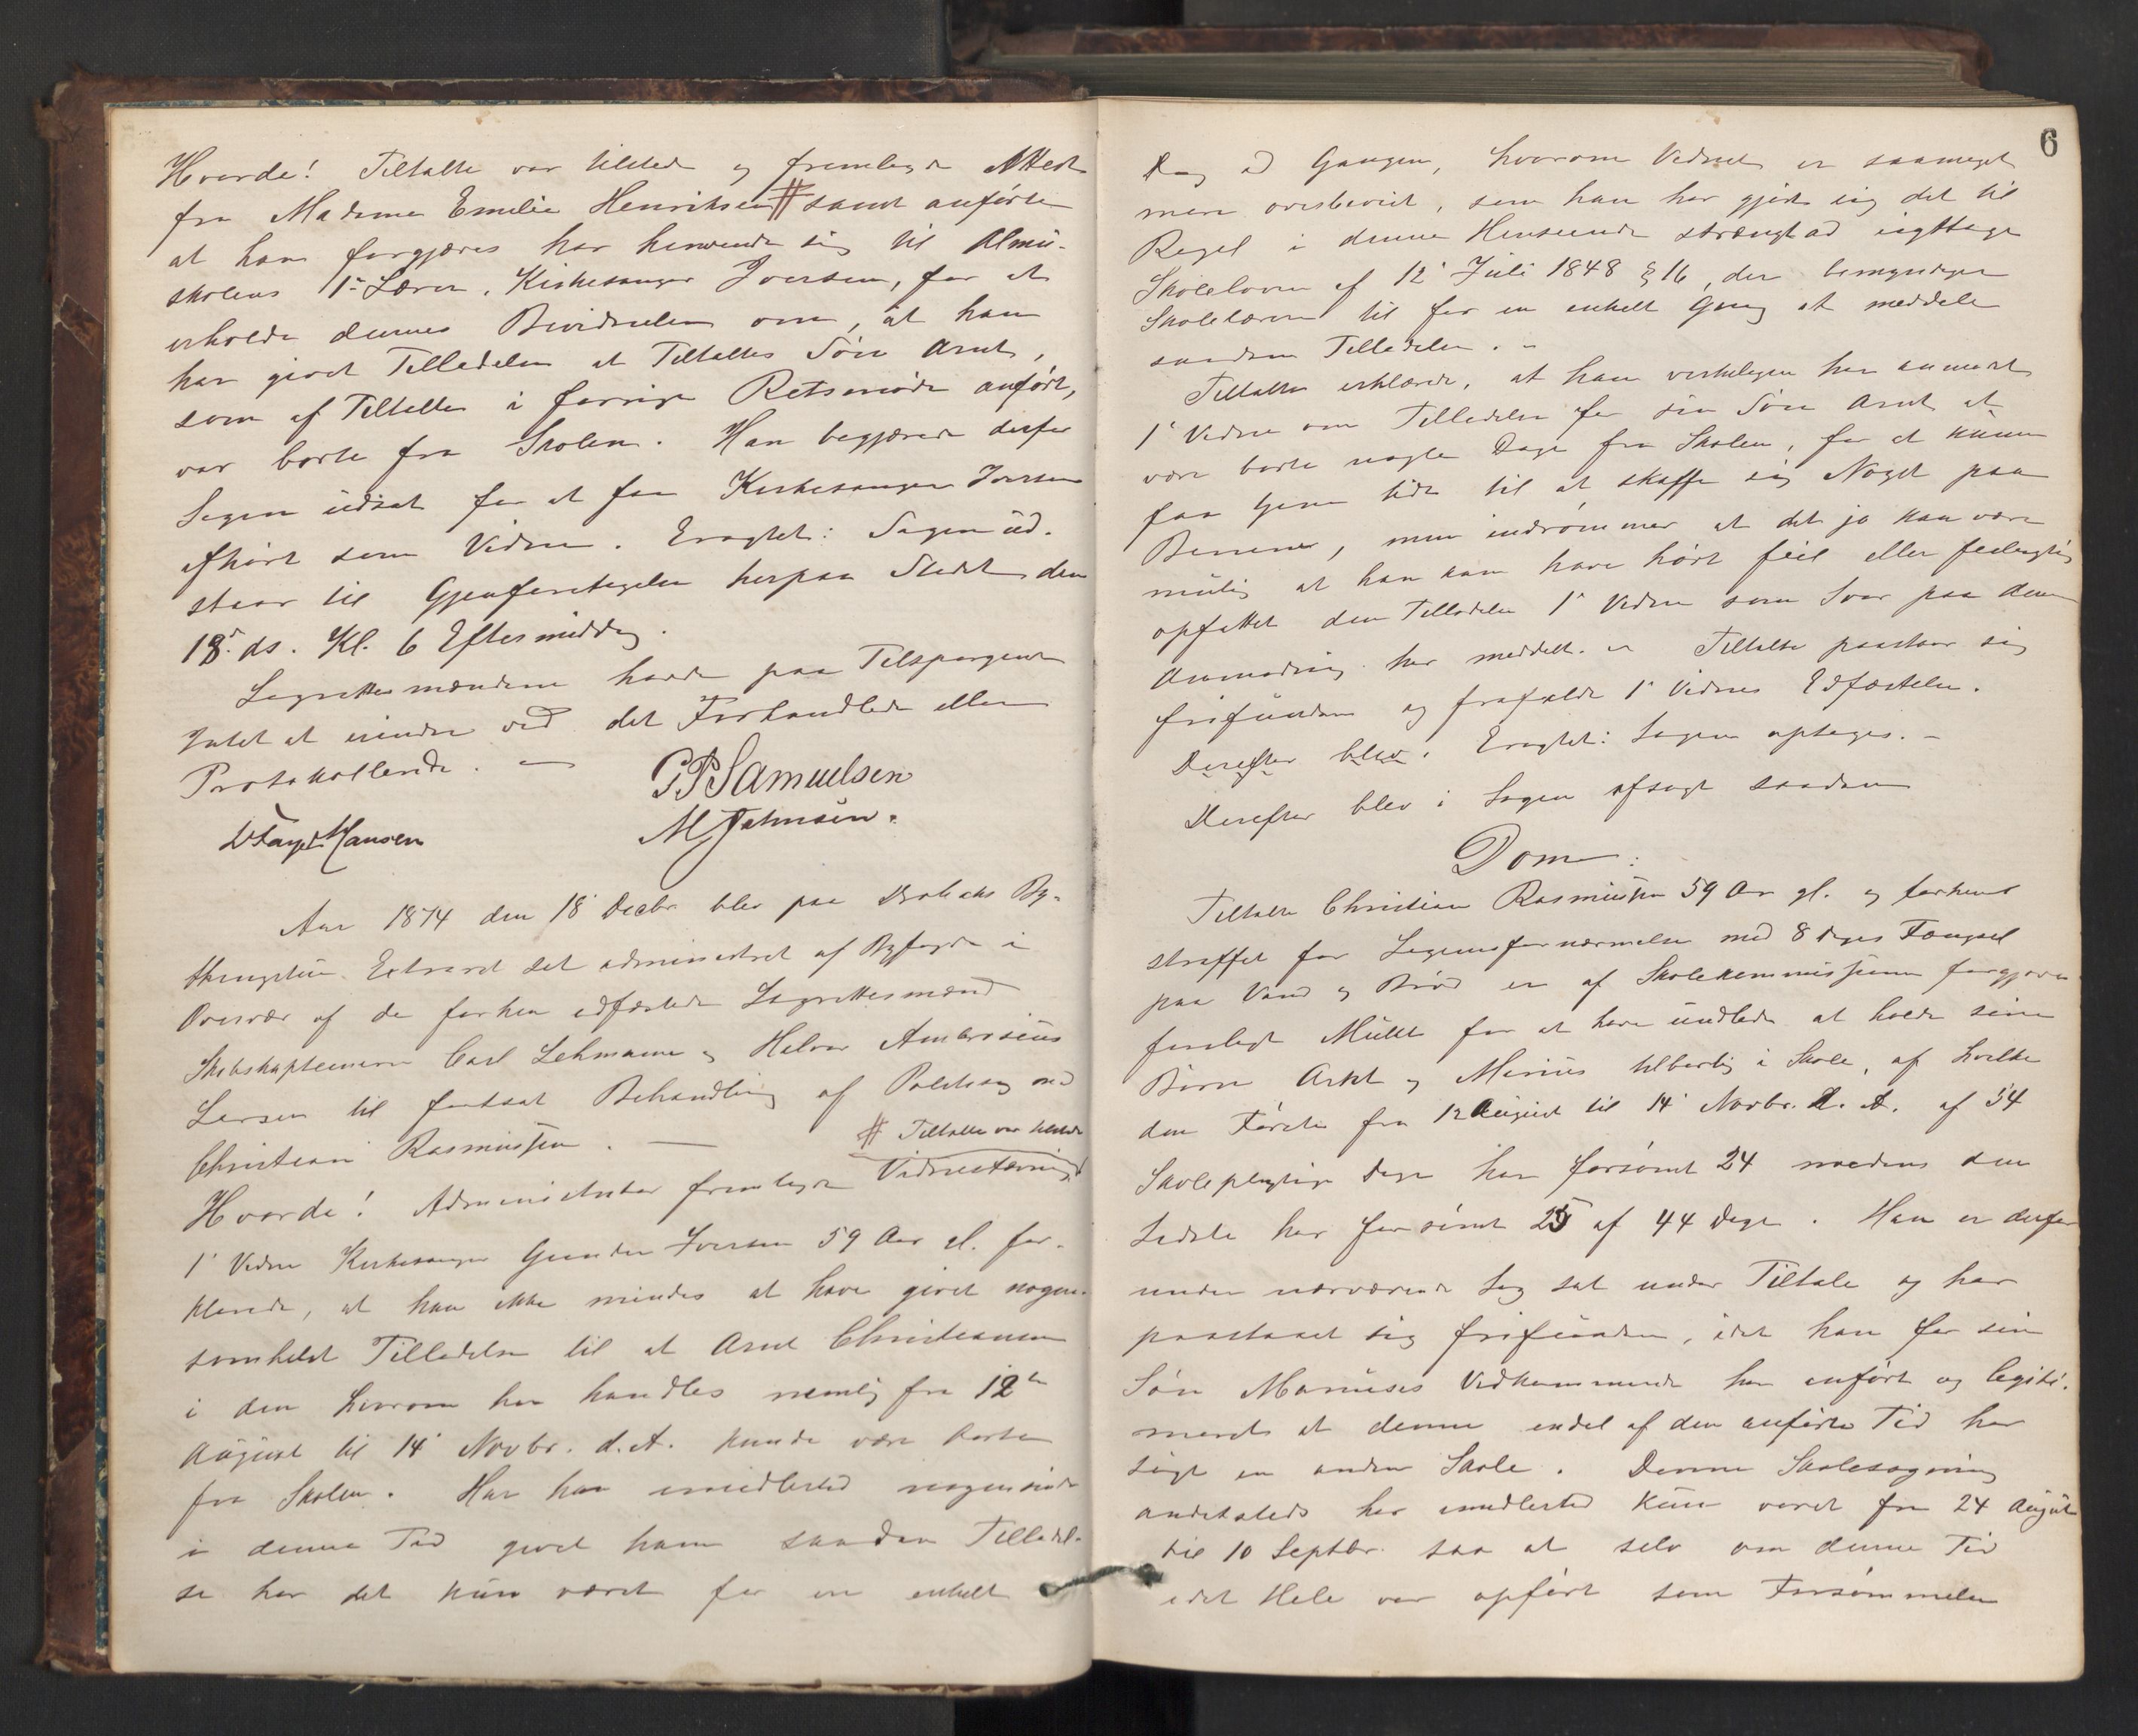 Hvorda! Tiltalte var tilstede og fremlagde Attest
fra Madame Emilie Henriksen # samt anførte
at han forgjæves har henvendt sig til Almu-
skolens 1ste Lærer, Kirkesanger Iversen, for at
erholde dennes Bevidnelse om, at han
har givet Tilladelse at Tiltaltes Søn Arnt,
som af Tiltalte i forrige Retsmøde anført,
var borte fra Skolen. Han begjærede derfor
Sagen udsat for at faa Kirkesanger Iversen
afhørt som Vidne. Eragtet: Sagen ud-
staar til Gjenforetagelse herpaa Stedet den
18de ds. Kl. 6 Eftermiddag.
Lagrettesmændene havde paa Tilspørgende
Intet at erindre ved det Forhandlede eller
Protokollerede. —
GPSamuelsen
Hansen
MJohnsen.
Aar 1874 den 18 Decbr blev paa Drøbaks By-
thingstue Extraret sat administreret af Byfogden i
Overvær af de forhen edfæstede Lagrettesmænd
Skibskapteinerne Carl Lehmann og Halvor Ambrosius
Larsen til fortsat Behandling af Politisag mod
Christian Rasmussen. —
# Tiltalte var tilstede
Hvorda! Administrator fremlagde Vidnestævning
1' Vidne Kirkesanger Gunder Iversen 59 Aar gl. for-
klarede, at han ikke mindes at have givet nogen-
somhelst Tilladelse til at Arnt Christiansen
i den hvorom her handles nemlig fra 12te
August til 14' Novbr. d. A. kunde være borte
fra Skolen. Har han imidlertid nogensinde
i denne Tid givet ham saadan Tilladel-
se har det kun været for en enkelt
6
Dag ad Gangen, hvorom Vidnet er saameget
mere overbevist, som han har gjort sig det til
Regel i denne Henseende strængt at iagttage
Skoleloven af 12' Juli 1848 § 16, der bemyndiger
Skolelæreren til for en enkelt Gang at meddele
saadan Tilladelse. –
Tiltalte erklærede, at han virkeligen har anmodet
1' Vidne om Tilladelse for sin Søn Arnt at
være borte nogle Dage fra Skolen, for at kunne
faa tjene lidt til at skaffe sig Noget paa
Benene, men indrømmer at det jo kan være
mulig at han kan have hørt feil eller feilagtig
opfattet den Tilladelse 1' Vidne som Svar paa denne
Anmodning har meddelt. – Tiltalte paastaar sig
frifunden og frafaldt 1' Vidnes Edfæstelse.
Derefter blev. Eragtet: Sagen optages. –
Derefter blev i Sagen afsagt saadan
Dom:
Tiltalte Christian Rasmussen 59 Aar gl. og forhen
straffet for Legemsfornærmelse med 8 Dages Fængsel
paa Vand og Brød er af Skolekommissionen forgjæves
forelagt Mulkt for at have undladt at holde sine
Børn Arnt og Marius tilbørlig i Skole, af hvilke
den Første fra 12 August til 14' Novbr. d. A. af 54
Skolepligtige Dage har forsømt 24 medens den
Sidste har forsømt 25 af 44 Dage. Han er derfor
under nærværende Sag sat under Tiltale og har
paastaaet sig frifunden, idet han for sin
Søn Mariuses Vedkommende har anført og legiti-
meret at denne endel af den anførte Tid har
søgt en anden Skole. Denne Skolesøgning
andetsteds har imidlertid kun varet fra 24 August
til 10 Septbr. saa at selv om denne Tid
idet Hele var opført som Forsømmelse